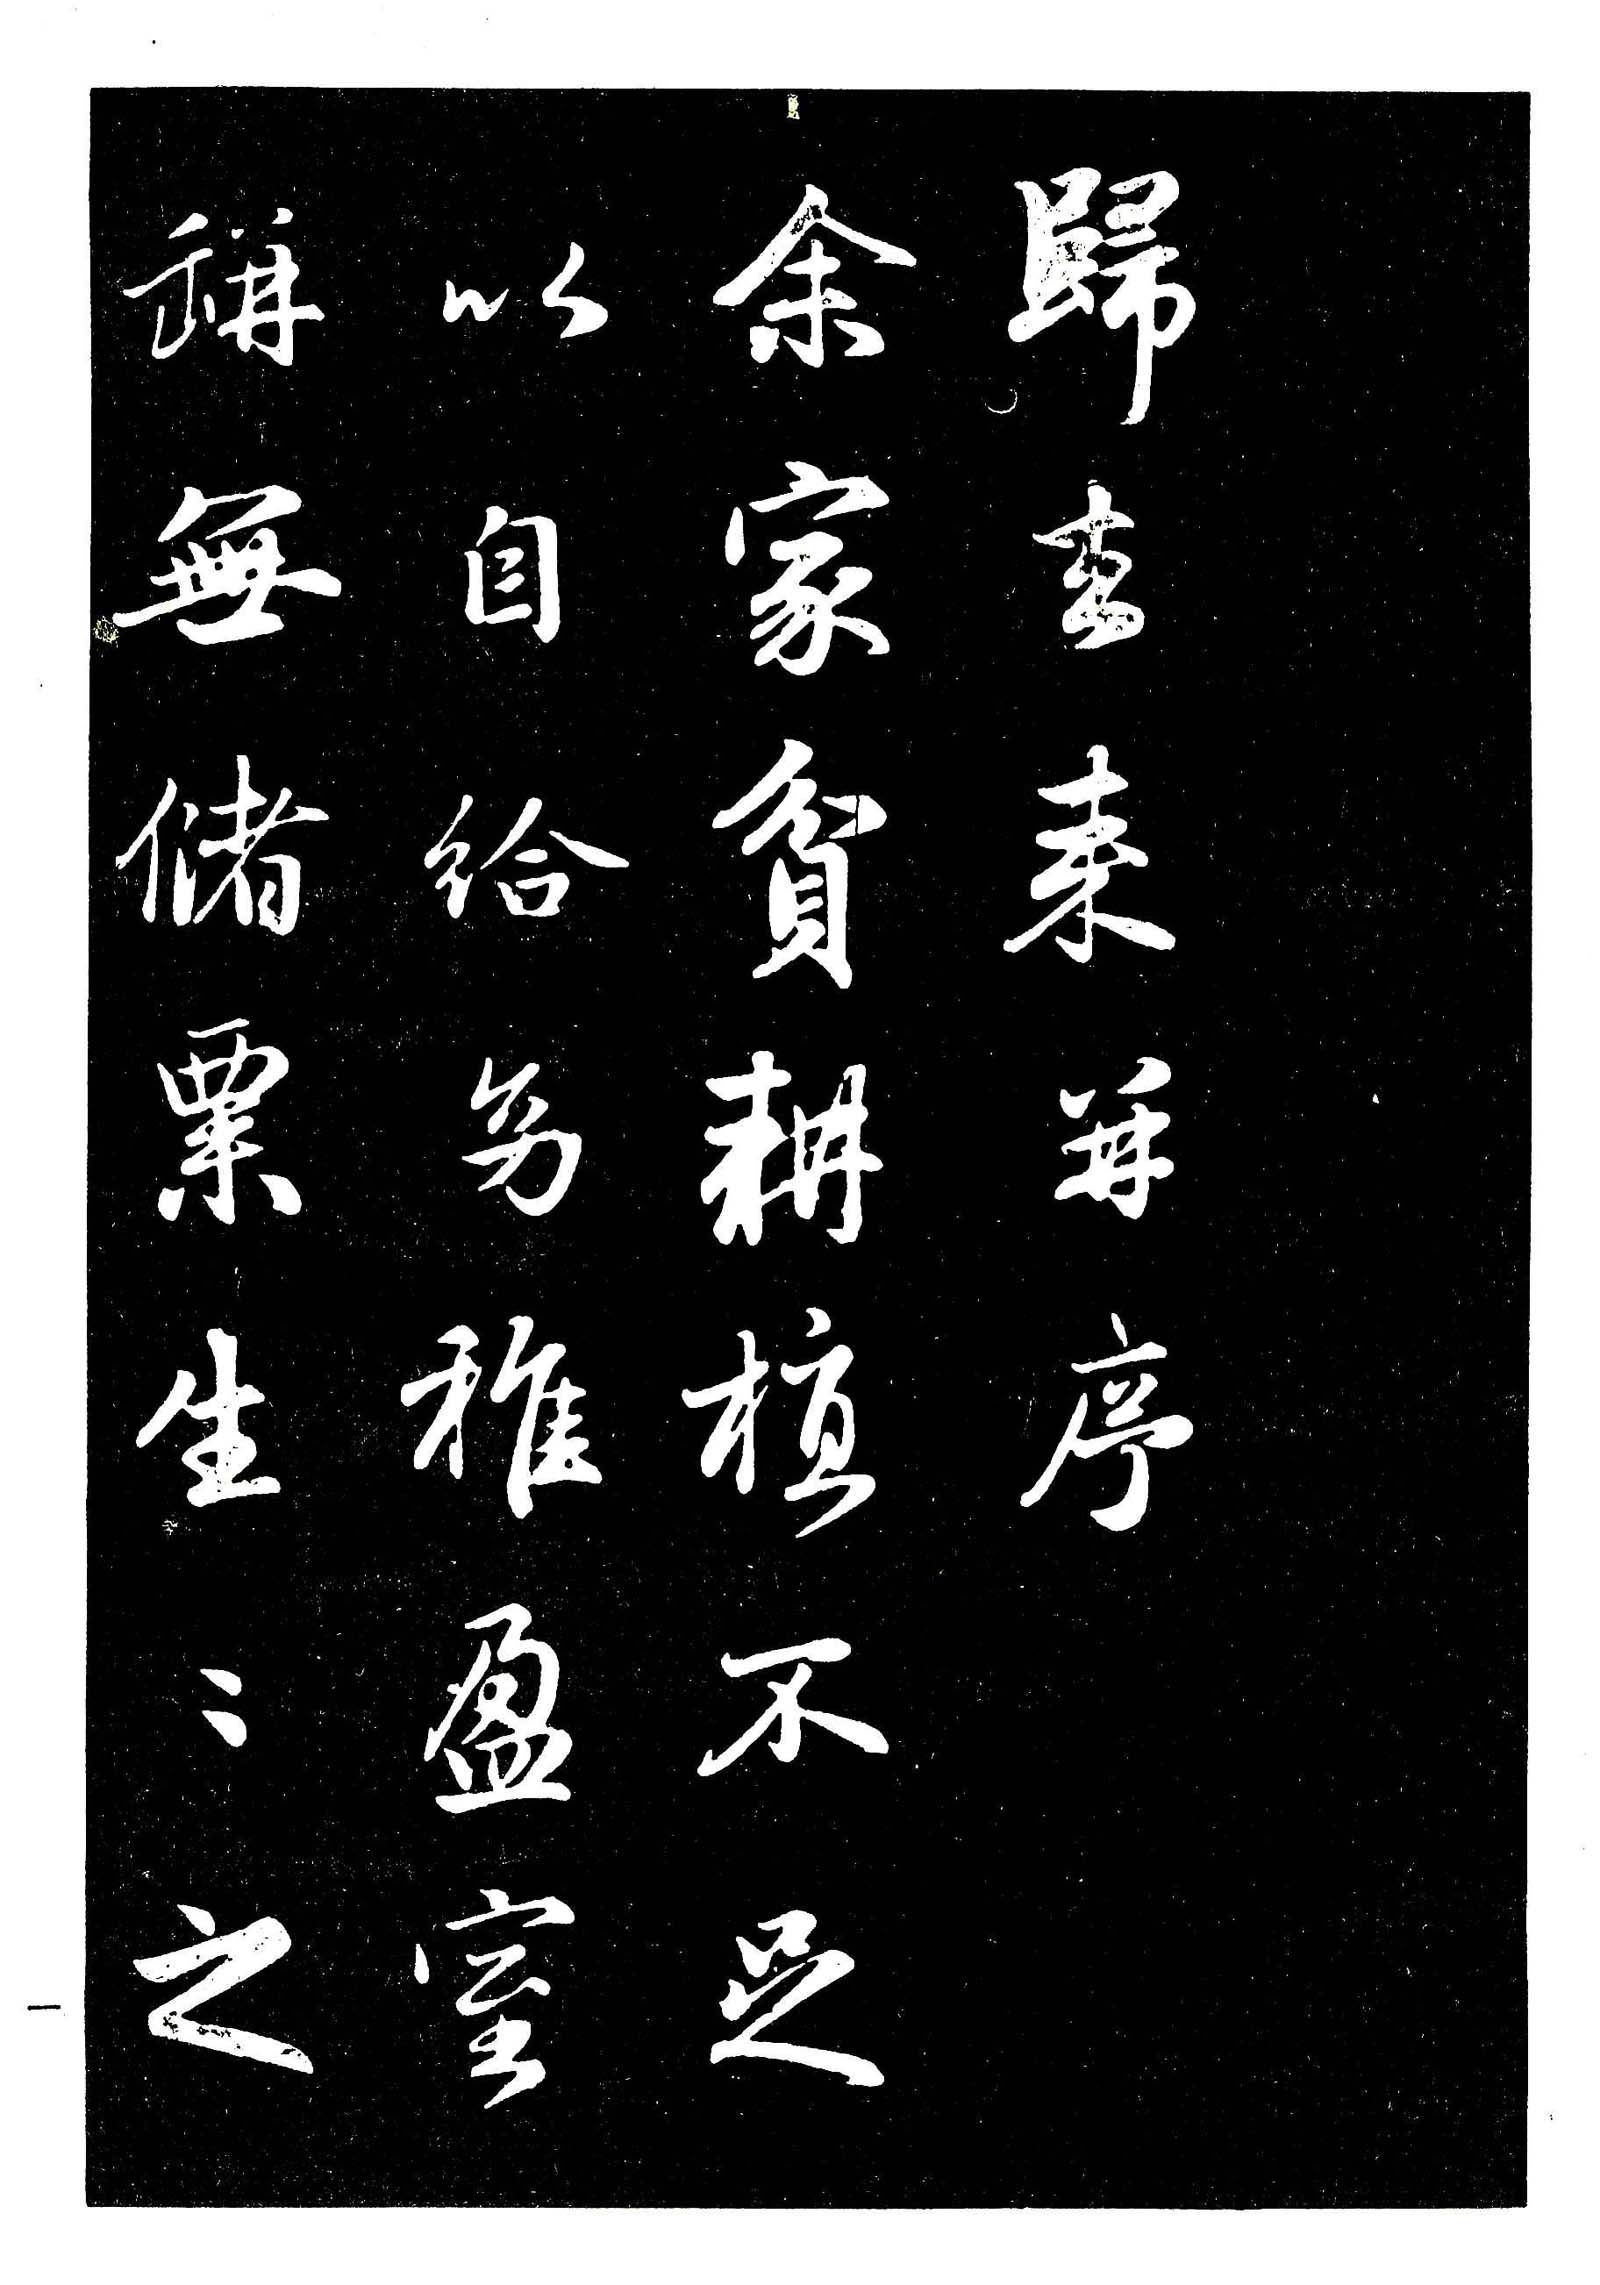 歸去来并序
余家貧耕植不足
以自給幼稚盈室
缾無儲粟生〻之
一